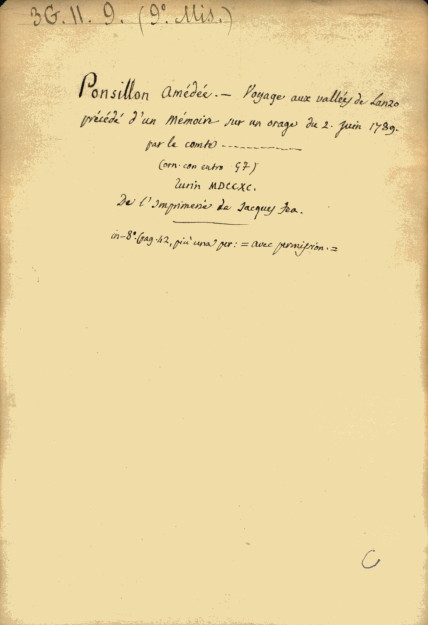 3G. 11. 9. (9º Mis.)
Ponsillon Amédée. — Voyage aux vallées de Lanzo
précédé d'un Mémoire sur un orage du 2. Juin 1789.
par le comte ----------
(orn. con entro G7)
Turin MDCCXC.
De l'Imprimerie de Jacques Fea.
in-8º. (pag. 42, più una per: = avec permission. =
C